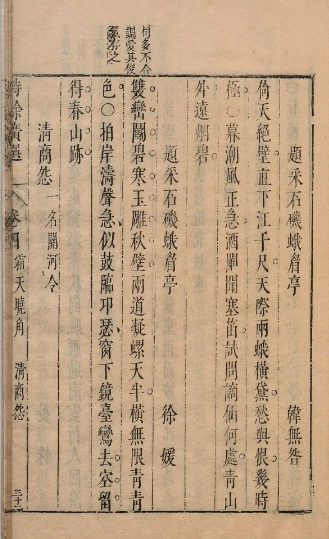 何多不合
調愛其俊
題采石磯蛾眉亭　韓無咎
倚天絕壁直下江千尺天際兩蛾橫黛愁與恨幾時
極○暮潮風正急酒闌聞塞笛試問謫仙何處青山
外遠烟碧
題采石磯蛾眉亭　徐媛
雙巒鬬碧寒玉雕秋壁兩道凝螺天半橫無限青青
色○拍岸濤聲急似鼓臨邛瑟窗下鏡臺鸞去空留
得春山跡
清商怨　一名關河令
詩餘廣選　卷四　霜天曉角　清商怨　三十